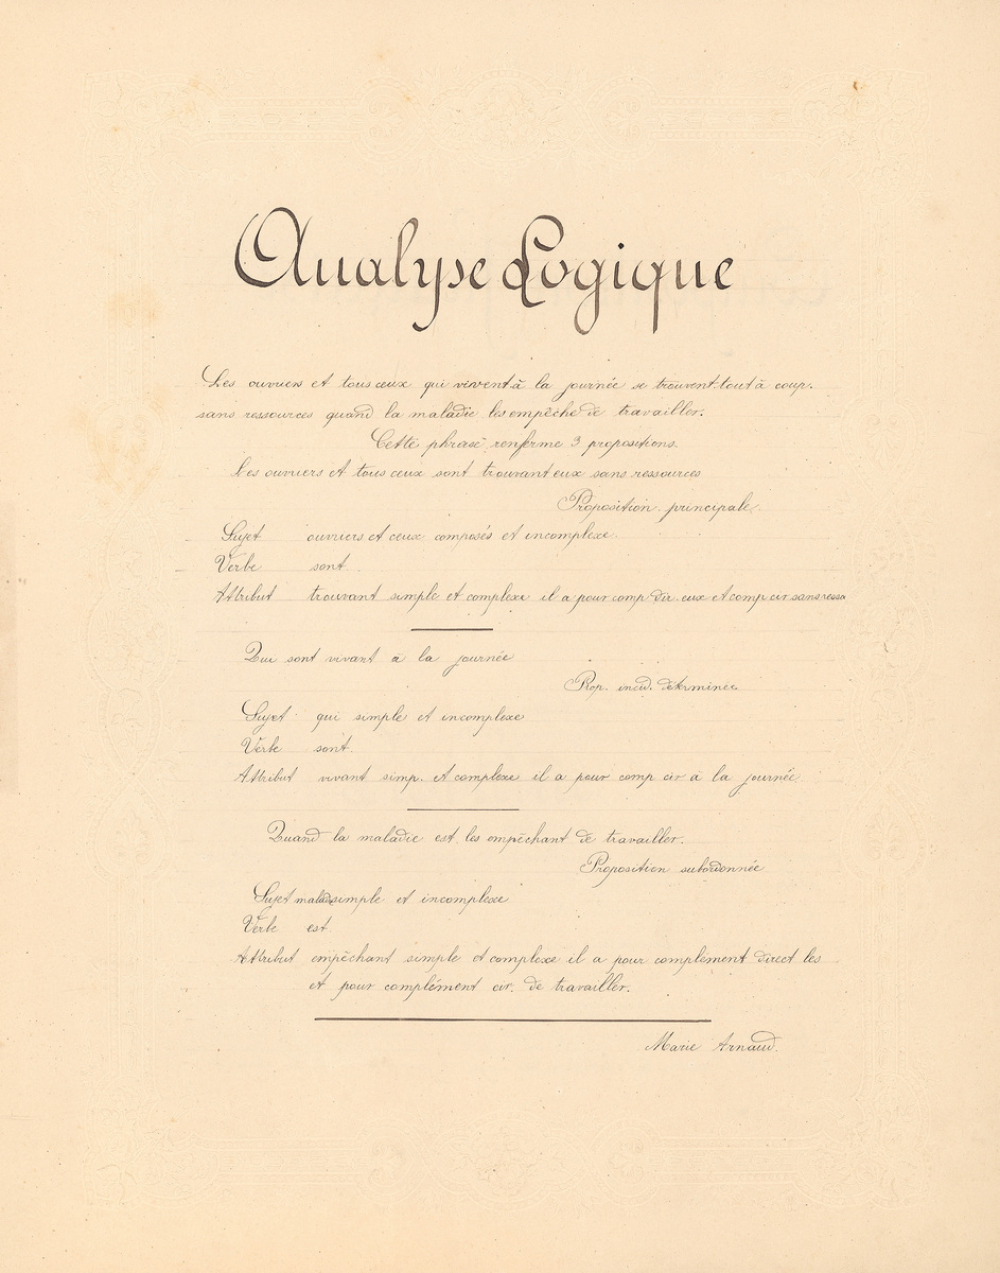 Analyse Logique
Les ouvriers et tous ceux qui vivent à la journée se trouvent tout à coup.
sans ressources quand la maladie les empêche de travailler.
Cette phrase renferme 3 propositions.
Les ouvriers et tous ceux sont trouvant eux sans ressources
Proposition principale.
Sujet ouvriers et ceux composés et incomplexe.
Verbe sont.
Attribut trouvant simple et complexe il a pour comp dir. eux et comp cir sans resso
Qui sont vivant à la journée
Prop. incid. déterminée.
Sujet: qui simple et incomplexe
Verbe sont.
Attribut vivant simp. et complexe il a pour comp cir à la journée.
Quand la maladie est les empêchant de travailler.
Proposition subordonnée
Sujet maladie simple et incomplexe
Verbe est.
Attribut empêchant simple et complexe il a pour complement direct les
et pour complément cir. de travailler.
Marie Arnaud.